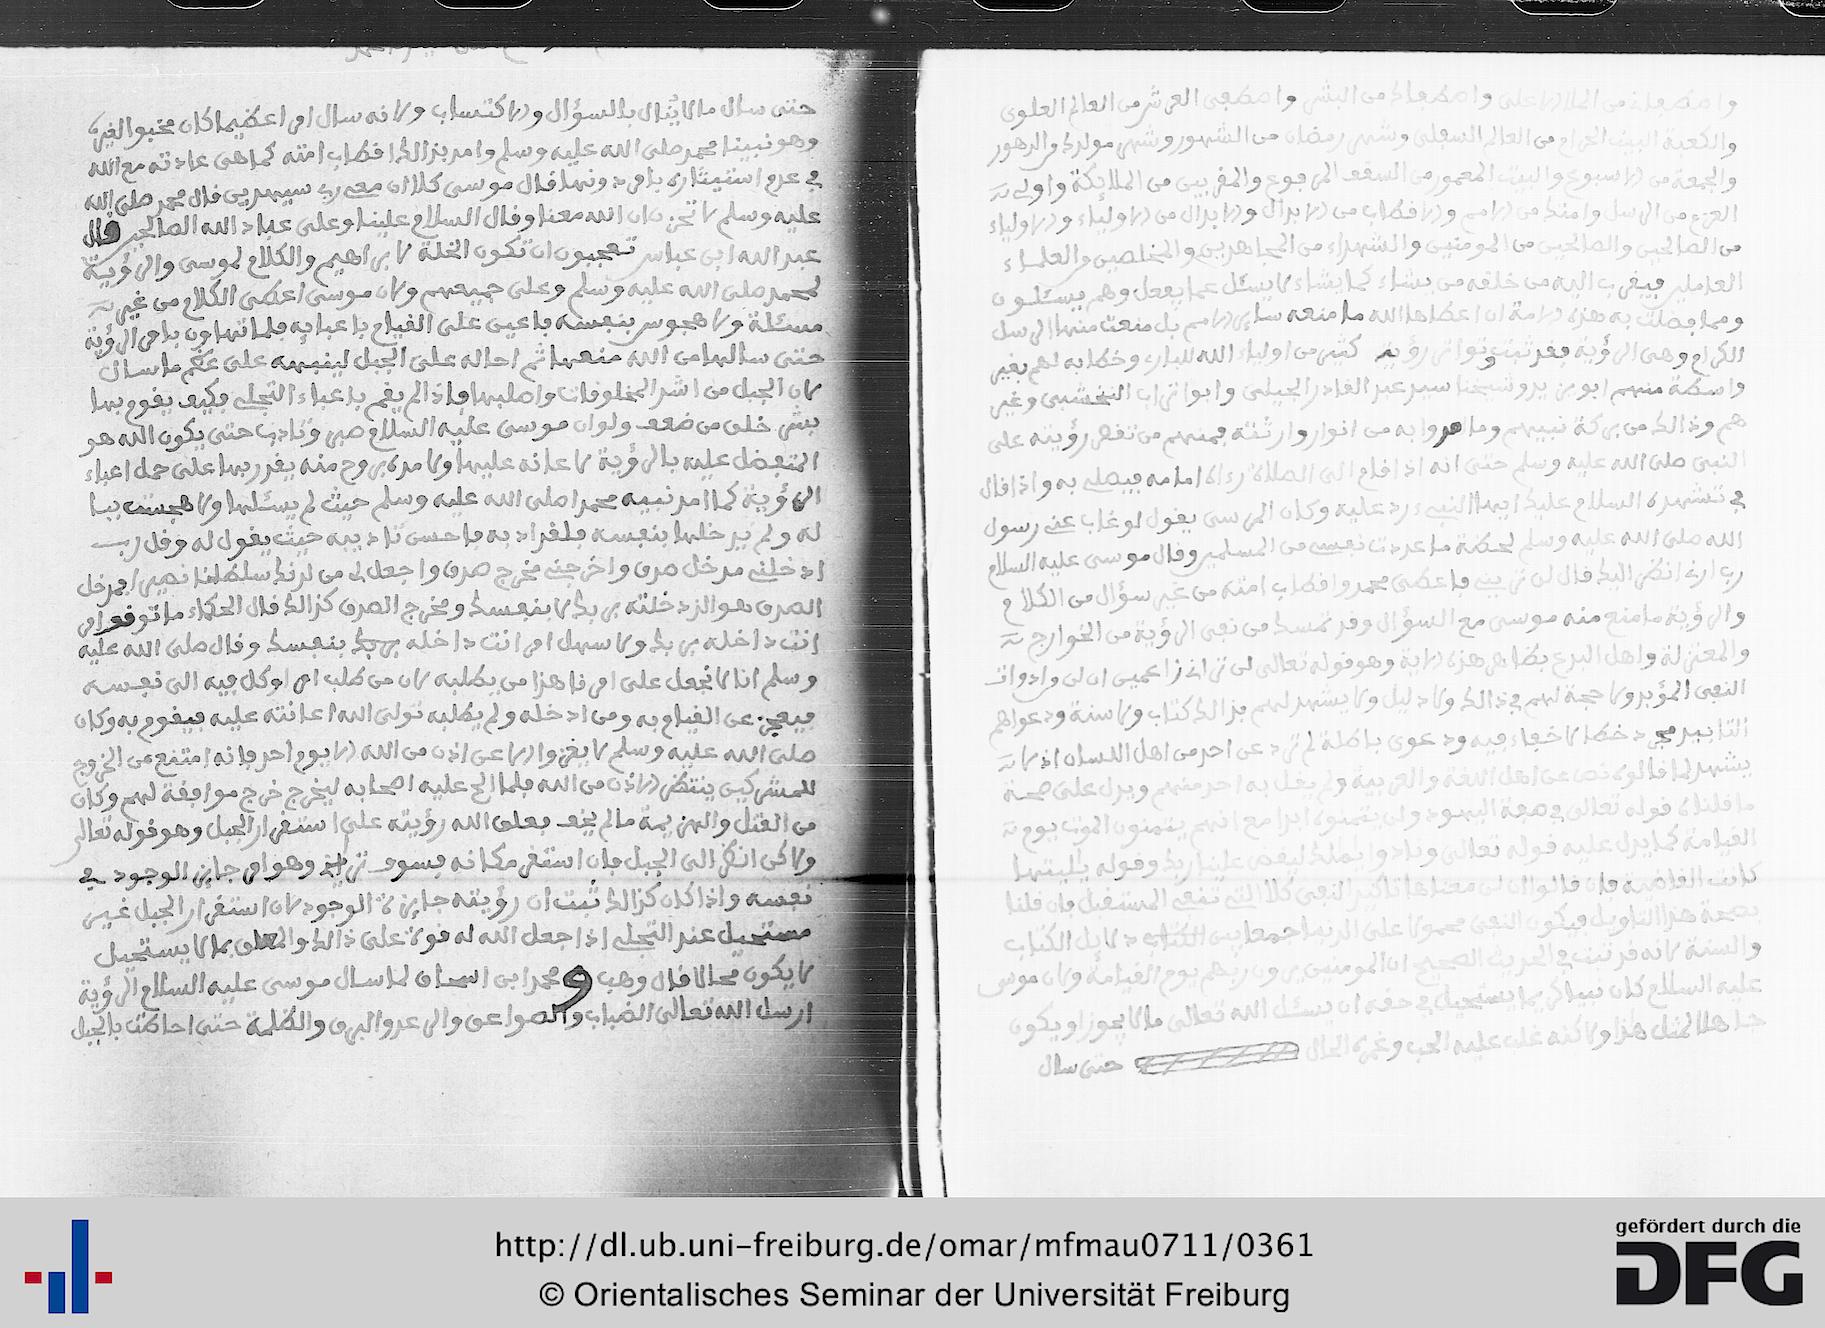 واصطفاك من الملإ الاعلى واصطفاك من البشر واصطفى العرش من العالم العلوي
والكعبة البيت الحرام من العالم السفلي وشهر رمضان من الشهور وشهر مولدك من الدهور
والجمعة من الاسبوع والبيت المعمور من السقف المرفوع والمقربين من الملائكة واولي
العزم من الرسل وامتك من الامم والاقطاب من الابدال والابدال من الاولياء والاولياء
من الصالحين والصالحين من المومنين والشهداء من المجاهدين والمخلصين من العلماء
العاملين فيقرب اليه من خلقه من يشاء كما يشاء لا يسئل عما يفعل وهم يسئلون
ومما فضلت به هذه الامة ان اعطاها الله ما منعه ساير الامم بل منعت منها الرسل
الكرام وهي الرؤية فقد ثبت وتواتر رؤية كثير من اولياء الله للبارئ وخطابه لهم بغير
واسطة منهم ابو يزيد وشيخنا سيد عبد القادر الجيلي وابو تراب النخشبي وغير
هم وذالك من بركة نبيهم وما من انوار وارثته فمنهم من رؤيته على
النبي صلى الله عليه وسلم حتى انه اذا قام الى الصلاة رءاه امامه فيصلي به واذا قال
في تشهده السلام عليك ايها النبيء رد عليه وكان المرسي يقول لو غاب عني رسول
الله صلى الله عليه وسلم لحظة ما عددت نفسي من المسلمين وقال موسى عليه السلام
رب ارني انظر اليك قال لن تريني فاعطى محمد واقطاب امته من غير سؤال من الكلام
والرؤية ما منع منه موسى مع السؤال وقد تمسك من نفى الرؤية من الخوارج
والمعتزلة واهل البدع بظاهر هذه الاية وهو قوله تعالى لن تراني زاعمين ان لن من ادوات
النفي المؤبد ولا حجة لهم في ذالك ولا دليل ولا يشهد لهم بذالك كتاب ولا سنة ودعواهم
التابيد خطا لا خفاء فيه ودعوى باطلة لم ترد عن احد من اهل اللسان اذ لا
يشهد لما قالوه نص عن اهل اللغة والعربية ولم يقل به احد منهم ويدل على صحة
ما قلناه قوله تعالى في صفة اليهود ولن يتمنوه ابدا مع انهم يتمنون الموت يوم
القيامة كما يدل عليه قوله تعالى ونادوا يا مالك ليقض علينا ربك وقوله يا ليتها
كانت القاضية فان قالوا ان لن معناها تاكيد النفي كلا التي تنفي المستقبل فان قلنا
بصحة هذا التاويل فيكون النفي محمولا على الدنيا جمعا بين دلايل الكتاب
والسنة لانه قد ثبت في الحديث الصحيح ان المومنين يرون ربهم يوم القيامة ولان موسى
عليه السلام كان نبيا يستحيل في حقه ان يسئل الله تعالى ما لا يجوز او يكون
جاهلا لمثل هذا ولاكنه غلب عليه الحب وغمره الحال
حتى سال
حتى سال ما لا ينال بالسؤال والاكتساب ولانه سال امرا عظيما كان مخبوا لغيره
وهو نبينا محمد صلى الله عليه وسلم وامد بذالك اقطاب امته كما هي عادته مع الله
في عدم استيثاره بامر دونها قال موسى كلا ان معي ربي سيهدين قال محمد صلى الله
عليه وسلم لا تحزن ان الله معنا وقال السلام علينا وعلى عباد الله الصالحين قال
عبد الله ابن عباس تعجبون ان تكون الخلة لابراهيم والكلام لموسى والرؤية
لمحمد صلى الله عليه وسلم وعلى جميعهم ولان موسى اعطى الكلام من غير
مسئلة ولا هجوس بنفسه فاعين على القيام باعبائه فلما تهاون بامر الرؤية
حتى سالها من الله منعها ثم احاله على الجبل لينبهه على عظم ما سال
لان الجبل من اشد المخلوقات واصلبها فاذا لم يقم باعباء التجلي فكيف يقوم بها
بشر خلق من ضعف ولو ان موسى عليه السلام صبر وتادب حتى يكون الله هو
المتفضل عليه بالرؤية لاعانه عليها ولامده بروح منه يقدر بها على حمل اعباء
الرؤية كما امد نبيه محمدا صلى الله عليه وسلم حيث لم يسئلها ولا هجست ببا
له ولم يدخلها بنفسه فلقد ادبه فاحسن تاديبه حيث يقول له وقل رب
ادخلني مدخل صدق واخرجني مخرج صدق واجعل لي من لدنك سلطانا نصيرا فمدخل
الصدق هو الذي دخلته بربك لا بنفسك ومخرج الصدق كذالك قال الحكماء ما توقف امر
انت داخله بربك ولا سهل امر انت داخله بنفسك وقال صلى الله عليه
وسلم انا لا نجعل على امرنا هذا من يطلبه لان من طلب امرا وكل فيه الى نفسه
فيعجز عن القيام به ومن ادخله ولم يطلبه تولى الله اعانته عليه فيقوم به وكان
صلى الله عليه وسلم لا يغزوا الا عن اذن من الله الا يوم احد فانه امتنع من الخروج
للمشركين ينتظر الاذن من الله فلما الح عليه اصحابه ليخرج خرج موافقة لهم وكان
من القتل والهزيمة ما لم يخف فعلق الله رؤيته على استقرار الجبل وهو قوله تعالى
ولاكن انظر الى الجبل فان استقر مكانه فسوف تريني وهو امر جايز الوجود في
نفسه واذا كان كذالك ثبت ان رؤيته جايزة الوجود لان استقرار الجبل غير
مستحيل عند التجلي اذا جعل الله له قوة على ذالك والمعلق بما لا يستحيل
لا يكون محالا قال وهب ومحمد ابن اسحاق لما سال موسى عليه السلام الرؤية
ارسل الله تعالى الضباب والصواعق والرعد والبرق والظلمة حتى احاطت بالجبل
http://dl.ub.uni-freiburg.de/omar/mfmau0711/0361
© Orientalisches Seminar der Universität Freiburg
gefördert durch die
DFG